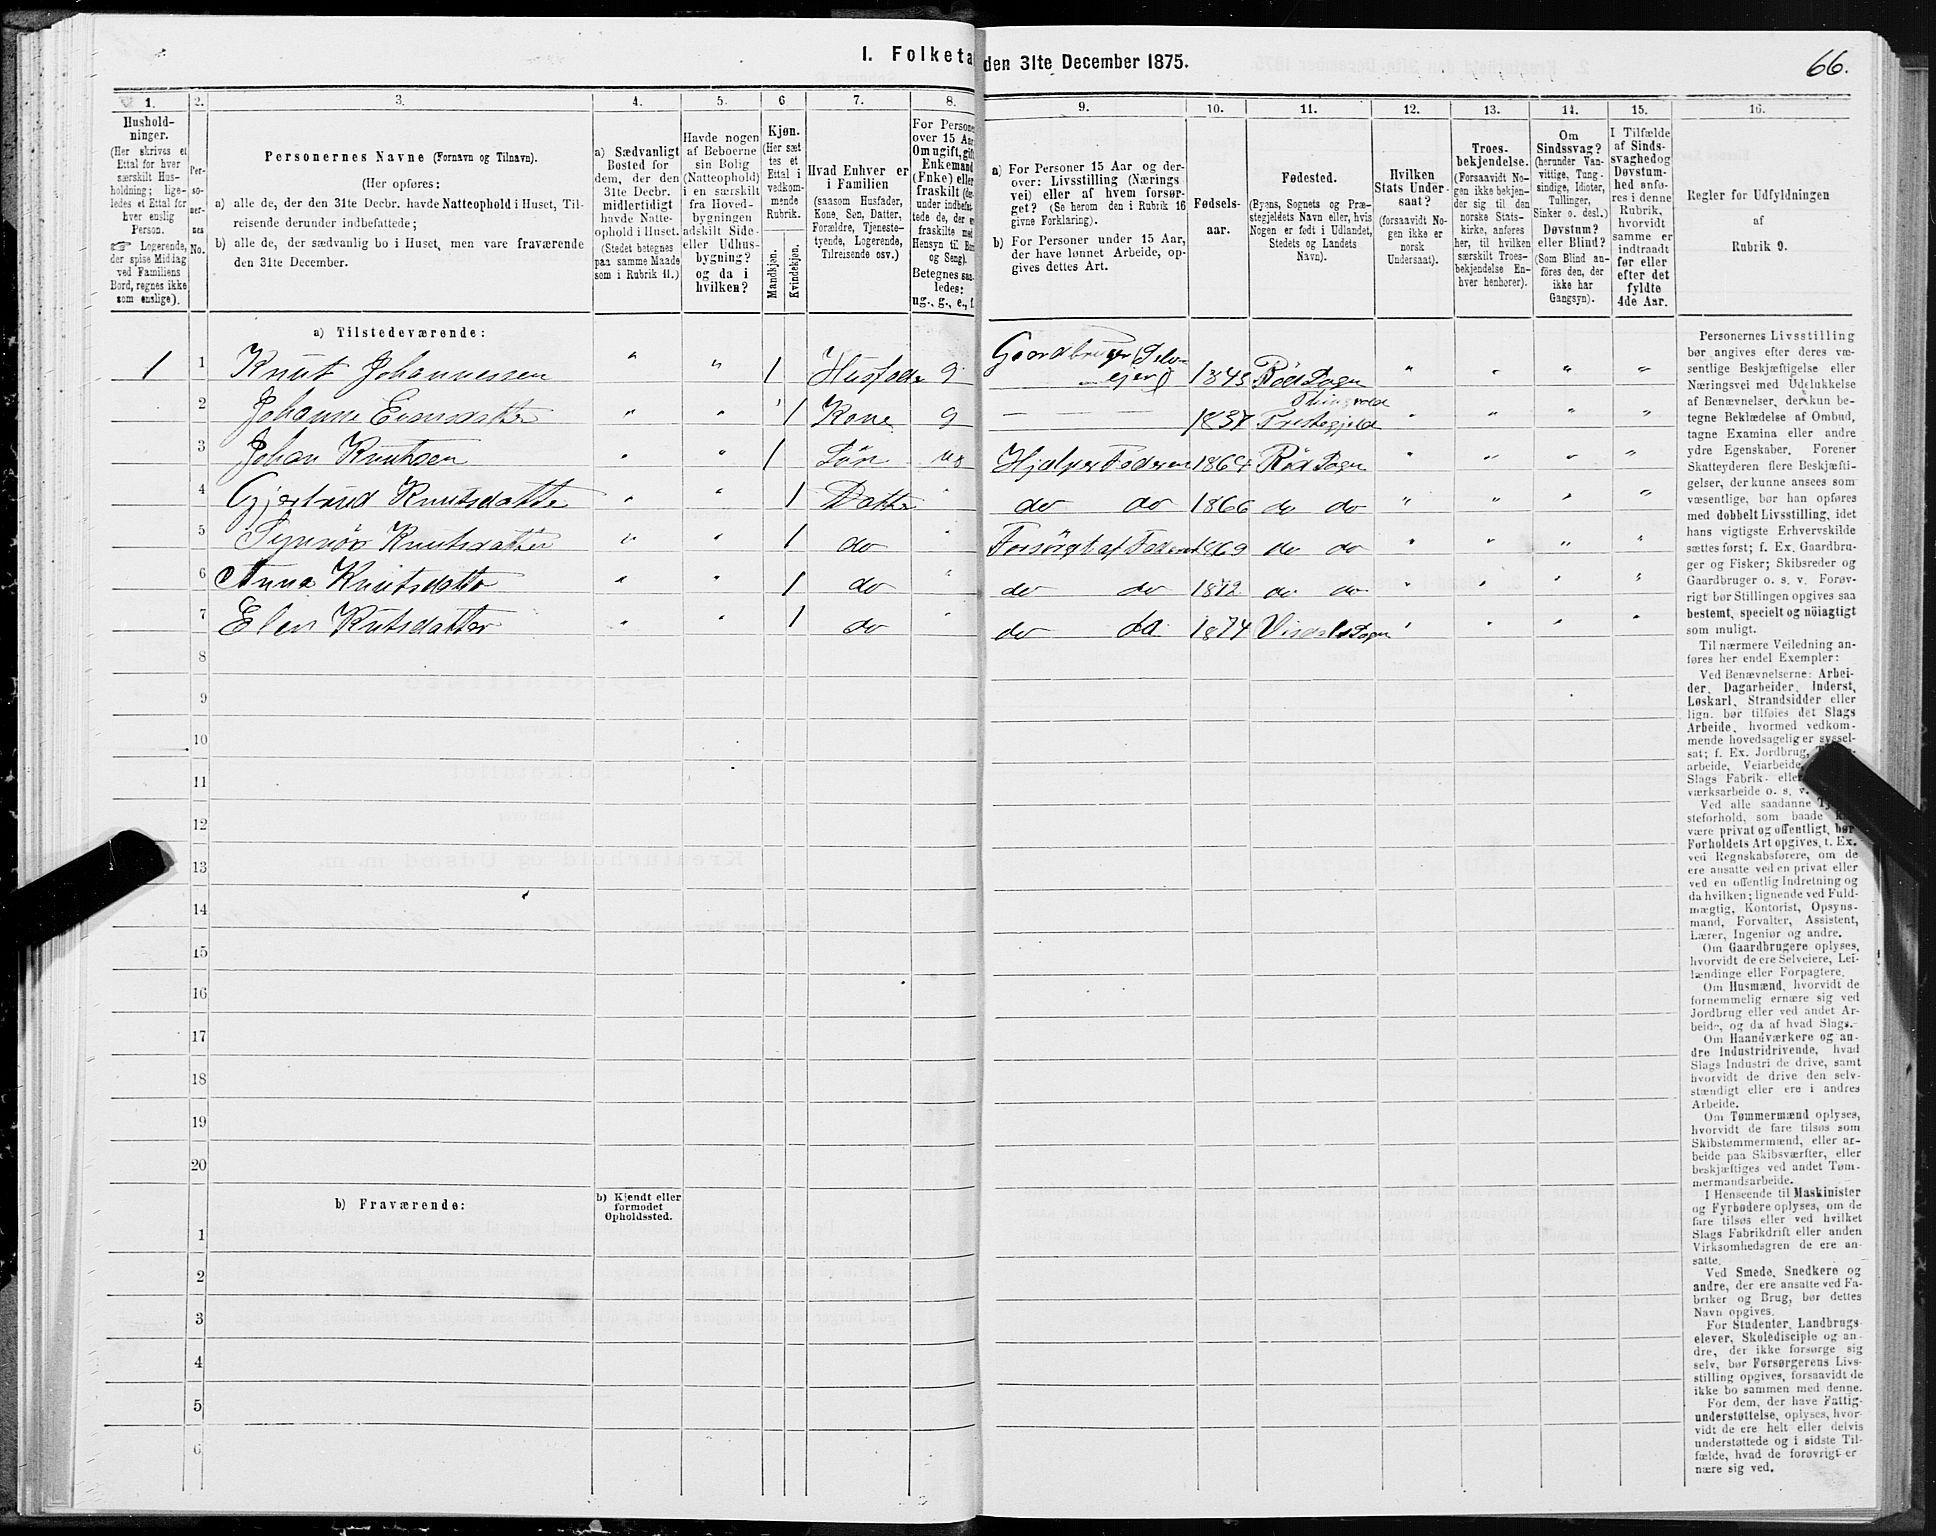 I. Folketæ
den 31te December 1875.
66.
1.
2.
3.
4.
5.
6
7.
8.
9.
10.
11.
12.
13.
14.
15.
16.
Hushold-
ninger.
(Her skrives et
Ettal for hver
særskilt Hus-
holdning; lige-
ledes et Ettal for
hver enslig
Person.
☞ Logerende,
der spise Middag
ved Familiens
Bord, regnes ikke
som enslige).
Per-
so-
ner-
nes
No.
Personernes Navne (Fornavn og Tilnavn).
(Her opføres:
a) alle de, der den 31te Decbr. havde Natteophold i Huset, Til-
reisende derunder indbefattede;
b) alle de, der sædvanlig bo i Huset, men vare fraværende
den 31te December.
a) Sædvanligt
Bosted for
dem, der den
31te Decbr.
midlertidigt
havde Natte-
ophold i Huset.
(Stedet betegnes
paa samme Maade
som i Rubrik 11.)
Havde nogen
af Beboerne
sin Bolig
(Natteophold)
i en særskilt
fra Hoved-
bygningen
adskilt Side-
eller Udhus-
bygning?
og da i
hvilken?
Kjøn.
(Her sæt-
tes et
Ettal i
vedkom-
mende
Rubrik.
Mandkjøn.
Kvindekjøn.
Hvad Enhver er
i Familien
(saasom Husfader,
Kone, Søn, Datter,
Forældre, Tjeneste-
tyende, Logerende,
Tilreisende osv.)
For Persone
over 15 Aar
Om ugift, gift
Enkemand
(Enke) eller
fraskilt (der-
under indbefat-
tede de, der er
fraskilte med
Hensyn til Bord
og Seng).
Betegnes saa-
ledes:
ug., g., e., f.
a) For Personer 15 Aar og der-
over: Livsstilling (Nærings
vei) eller af hvem forsør-
get? (Se herom den i Rubrik 16
givne Forklaring).
b) For Personer under 15 Aar,
der have lønnet Arbeide, op-
gives dettes Art.
Fødsels-
aar.
Fødested.
(Byens, Sognets og Præ-
stegjeldets Navn eller, hvis
Nogen er født i Udlandet,
Stedets og Landets
Navn).
Hvilken
Stats Under-
saat?
(forsaavidt No-
gen ikke er
norsk
Undersaat).
Troes-
bekjendelse.
(Forsaavidt No-
gen ikke bekjen-
der sig til den
norske Stats-
kirke, anføres
her, til hvilken
særskilt Troes-
bekjendelse En-
hver henhører).
Om
Sindssvag?
(herunder Van-
vittige, Tung-
sindige, Idioter,
Tullinger,
Sinker o. desl.)
Døvstum?
eller Blind?
(Som Blind an-
føres den, der
ikke har
Gangsyn).
I Tilfælde
af Sinds-
svaghed og
Døvstum-
hed anfø-
res i denne
Rubrik,
hvorvidt
samme er
indtraadt
før eller
efter det
fyldte
4de Aar.
Regler for Udfyldningen
af
Rubrik 9.
a) Tilstedeværende:
1 1 Knut Johannessen " " 1 Husfader g Gaardbruger Selv-
ejer 1845 Röd Sogn " " " "
2 Johanne Evensdatter " " 1 Kone g — — 1837 Thingvold
Prestegjeld " " " "
3 Johan Knutsen " " 1 Sön ug Hjelper Faderen 1864 Röd Sogn " " " "
4 Gjertrud Knutsdatte " " 1 Datter " do do 1866 do do " " " "
5 Synnöv Knutsdatter " " 1 do " Forsörget af Faderen 1869 do do " " " "
6 Anna Knutsdatte " " 1 do " do do 1872 do do " " " "
7 Elen Knutsdatter " " 1 do " do do 1874 Sogn " " " "
8
9
10
11
12
13
14
15
16
17
18
19
20
b) Fraværende:
b) Kjendt eller
formodet
Opholdssted.
1
2
3
4
5
6
Personernes Livsstilling
bør angives efter deres væ-
sentlige Beskjæftigelse eller
Næringsvei med Udelukkelse
af Benævnelser, der kun be-
tegne Beklædelse af Ombud,
tagne Examina eller andre
ydre Egenskaber. Forener
Skatteyderen flere Beskjæfti-
gelser, der kunne ansees som
væsentlige, bør han opføres
med dobbelt Livsstilling, idet
hans vigtigste Erhvervskilde
sættes først; f. Ex. Gaardbru-
ger og Fisker; Skibsreder og
Gaardbruger o. s. v. Forøv-
rigt bør Stillingen opgives saa
bestemt, specielt og nöiagtigt
som muligt.
Til nærmere Veiledning an-
føres her endel Exempler:
Ved Benævnelserne: Arbei-
der, Dagarbeider, Inderst,
Løskarl, Strandsidder eller
lign. bør tilføies det Slags
Arbeide, hvormed vedkom-
mende hovedsagelig er syssel-
sat; f. Ex. Jordbrug,
arbeide, Veiarbeide,
Slags Fabrik- eller
værksarbeide o. s. v.
Ved alle saadanne Tj
steforhold, som baade
være privat og offentligt, bør
Forholdets Art opgives, t. Ex.
ved Regnskabsførere, om de
ere ansatte ved en privat eller
ved en offentlig Indretning og
da hvilken; lignende ved Fuld-
mægtig, Kontorist, Opsyns-
mand, Forvalter, Assistent,
Lærer, Ingeniør og andre.
Om Gaardbrugere oplyses,
hvorvidt de ere Selveiere, Lei-
lændinge eller Forpagtere.
Om Husmænd, hvorvidt de
fornemmelig ernære sig ved
Jordbrug eller ved andet Ar-
beide, og da af hvad Slags.
Om Haandværkere og an-
dre Industridrivende, hvad
Slags Industri de drive, samt
hvorvidt de drive den selv-
stændigt eller ere i andres
Arbeide.
Om Tømmermænd oplyses,
hvorvidt de fare tilsøs som
Skibstømmermænd, eller ar-
beide paa Skibsværfter, eller
beskjæftiges ved andet Tøm-
mermandsarbeide.
I Henseende til Maskinister
og Fyrbødere oplyses, om de
fare tilsøs eller ved hvilket
Slags Fabrikdrift eller anden
Virksomhedsgren de ere an-
satte.
Ved Smede, Snedkere og
andre, der ere ansatte ved Fa-
briker og Brug, bør dettes
Navn opgives.
For Studenter, Landbrugs-
elever, Skoledisciple og an-
dre, der ikke forsørge sig
selv, bør Forsørgerens Livs-
stilling opgives, forsaavidt de
ikke bo sammen med denne.
For dem, der have Fattig-
understøttelse, oplyses, hvor-
vidt de ere helt eller delvis
understøttede og i sidste Til-
fælde, hvad de forøvrigt er-
nære sig ved.